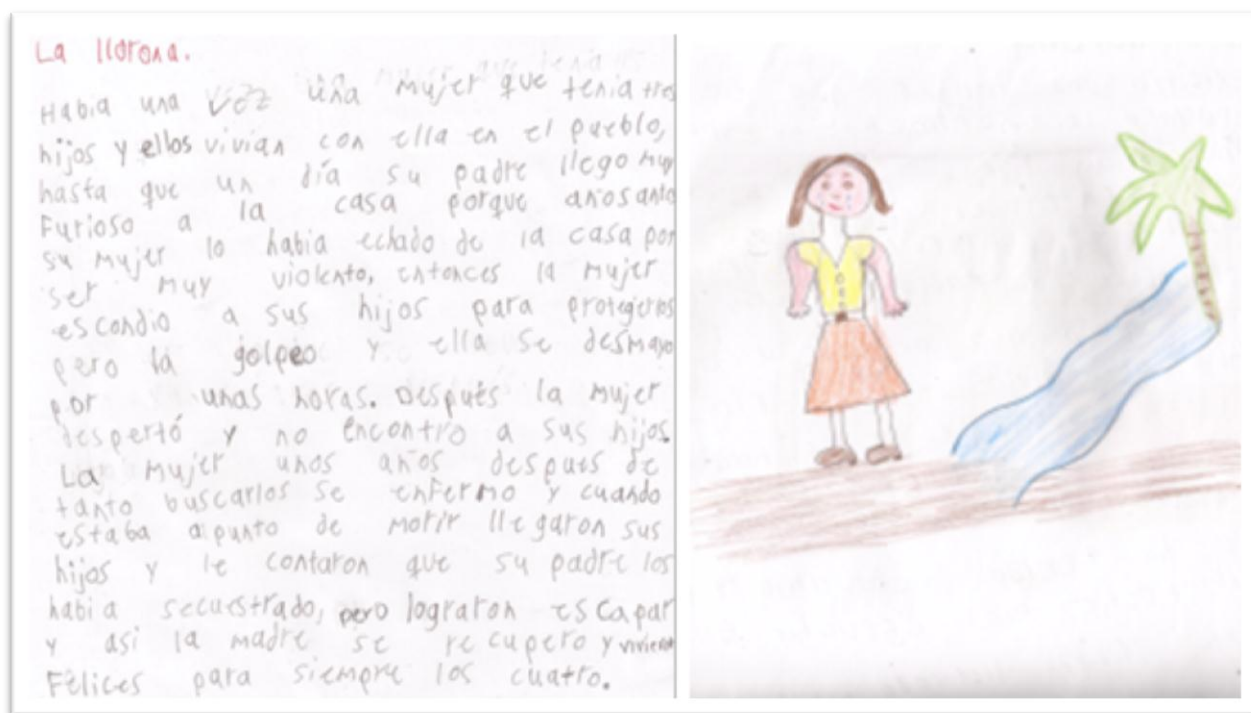 La llorona.
Habia una vez una mujer que tenia tres
hijos y ellos vivian con ella en el pueblo,
hasta que un día su padre llego muy
furioso a la casa porque años antes
su mujer lo habia echado de la casa por
ser muy violento, entonces la mujer
escondio a sus hijos para protegeros
pero la golpeo y ella se desmayo
por unas horas. Después la mujer
despertó y no encontro a sus hijos.
La mujer unos años despues de
tanto buscarlos se enfermo y cuando
estaba apunto de morir llegaron sus
hijos y le contaron que su padre los
habia secuestrado, pero lograron escapar
y asi la madre se recupero y vivieron
Felices para siempre los cuatro.